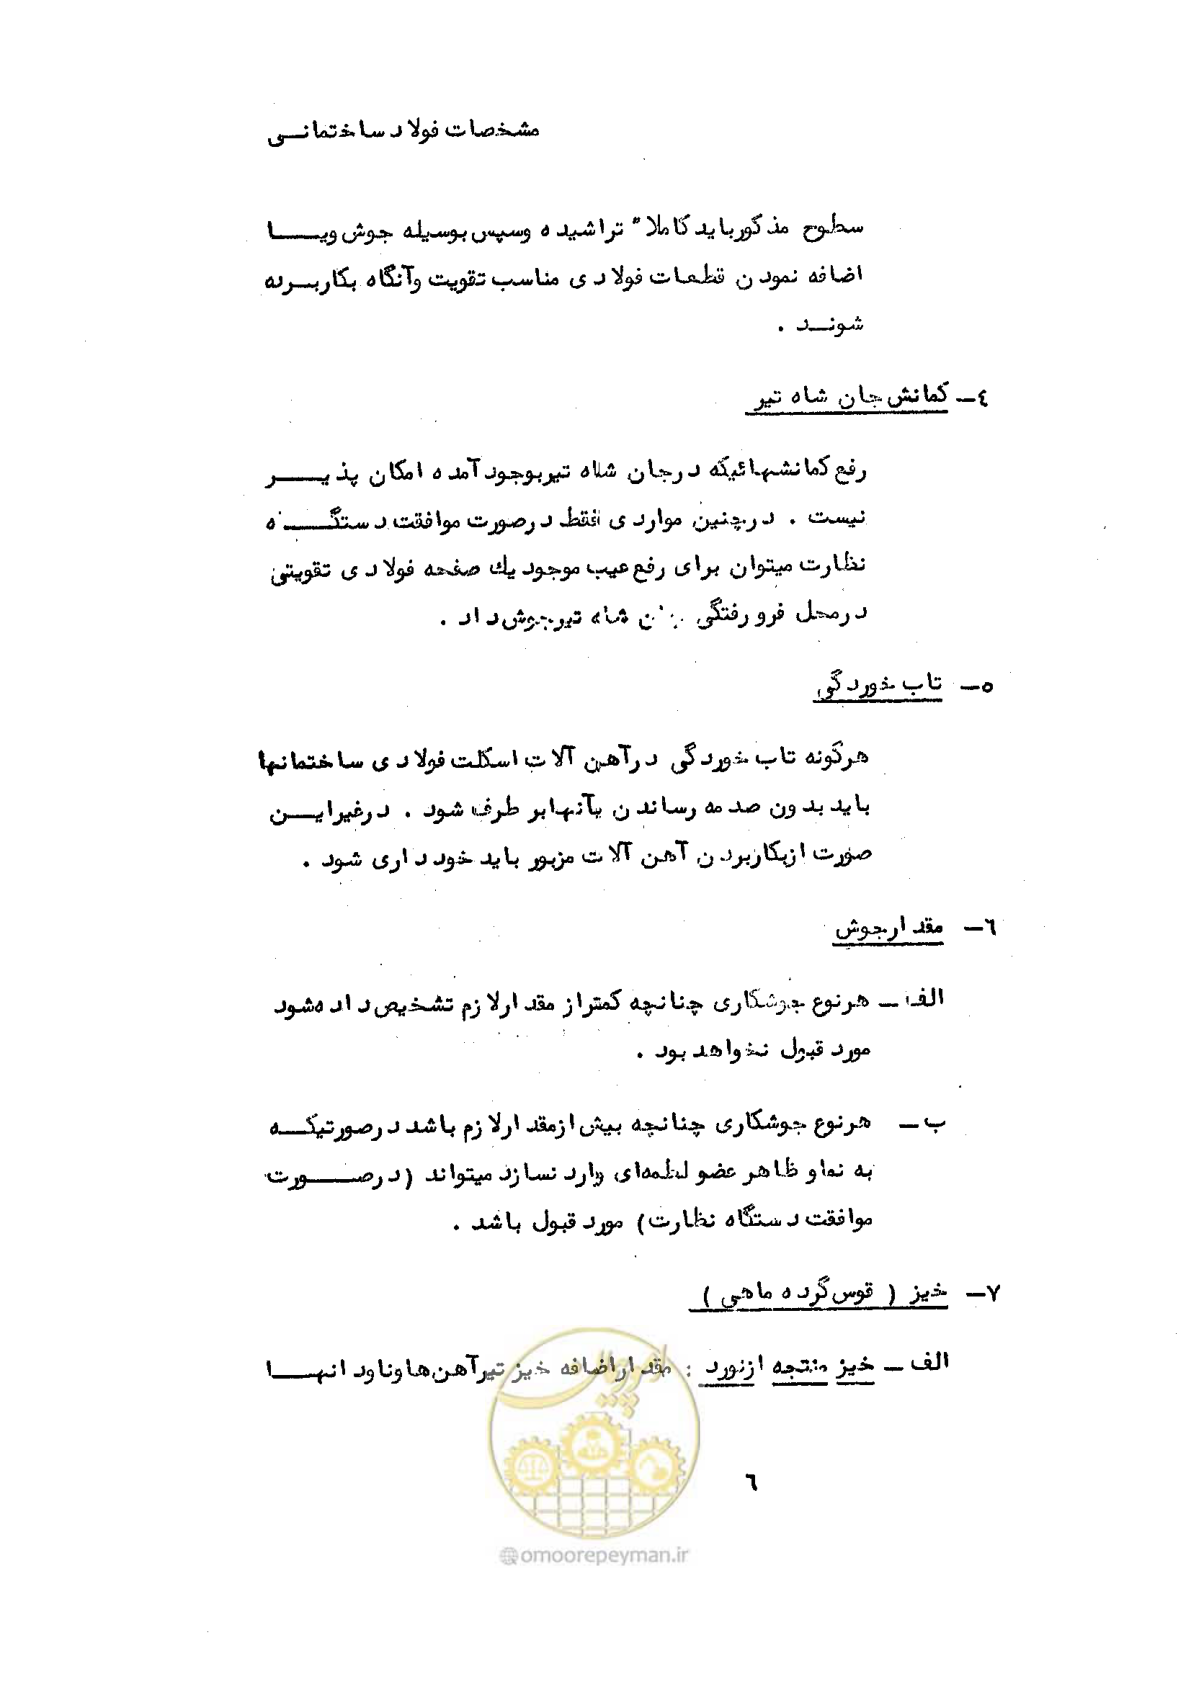 مشخصات فولاد ساختمانی
سطوح مذکور باید کاملا" تراشیده وسپس بوسیله جوش ویا
اضافه نمودن قطعات فولادی مناسب تقویت وآنگاه بکاربرده
شوند .
٤- کمانش جان شاه تیر
رفع کمانشهائیکه درجان شاه تیربوجود آمده امکان پذیر
نیست . درچنین مواردی فقط درصورت موافقت دستگاه
نظارت میتوان برای رفع عیب موجود یك صفحه فولادی تقویتی
درمحل فرو رفتگی شاه تیرجوش داد .
٥- تاب خوردگی
هرگونه تاب خوردگی درآهن آلات اسکلت فولادی ساختمانها
باید بدون صدمه رساندن بآنها بر طرف شود . درغیراین
صورت ازبکاربردن آهن آلات مزبور باید خودداری شود .
٦- مقدار جوش
الف - هرنوع جوشکاری چنانچه کمتراز مقدار لازم تشخیص داده شود
مورد قبول نخواهد بود .
ب - هرنوع جوشکاری چنانچه بیش ازمقدار لازم باشد درصورتیکه
به نماو ظاهر عضو لطمه‌ای وارد نسازد میتواند (درصورت
موافقت دستگاه نظارت) مورد قبول باشد .
٧- خیز ( قوس گرده ماهی )
الف - خیز منتجه ازنورد : مقدار اضافه خیز تیرآهن ها وناودانها
امور پیمان
٦
@omoorepeyman.ir